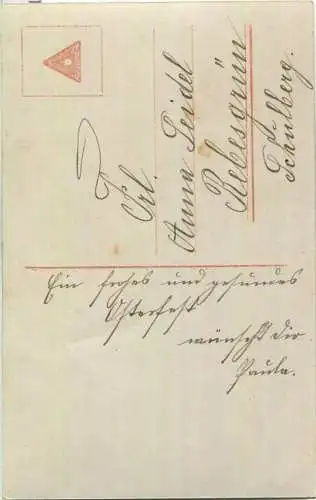 Frl.
Anna Seidel
Rebesgrün
Schulberg.
Ein frohes und gesundes
Osterfest
wünscht dir
Paula.